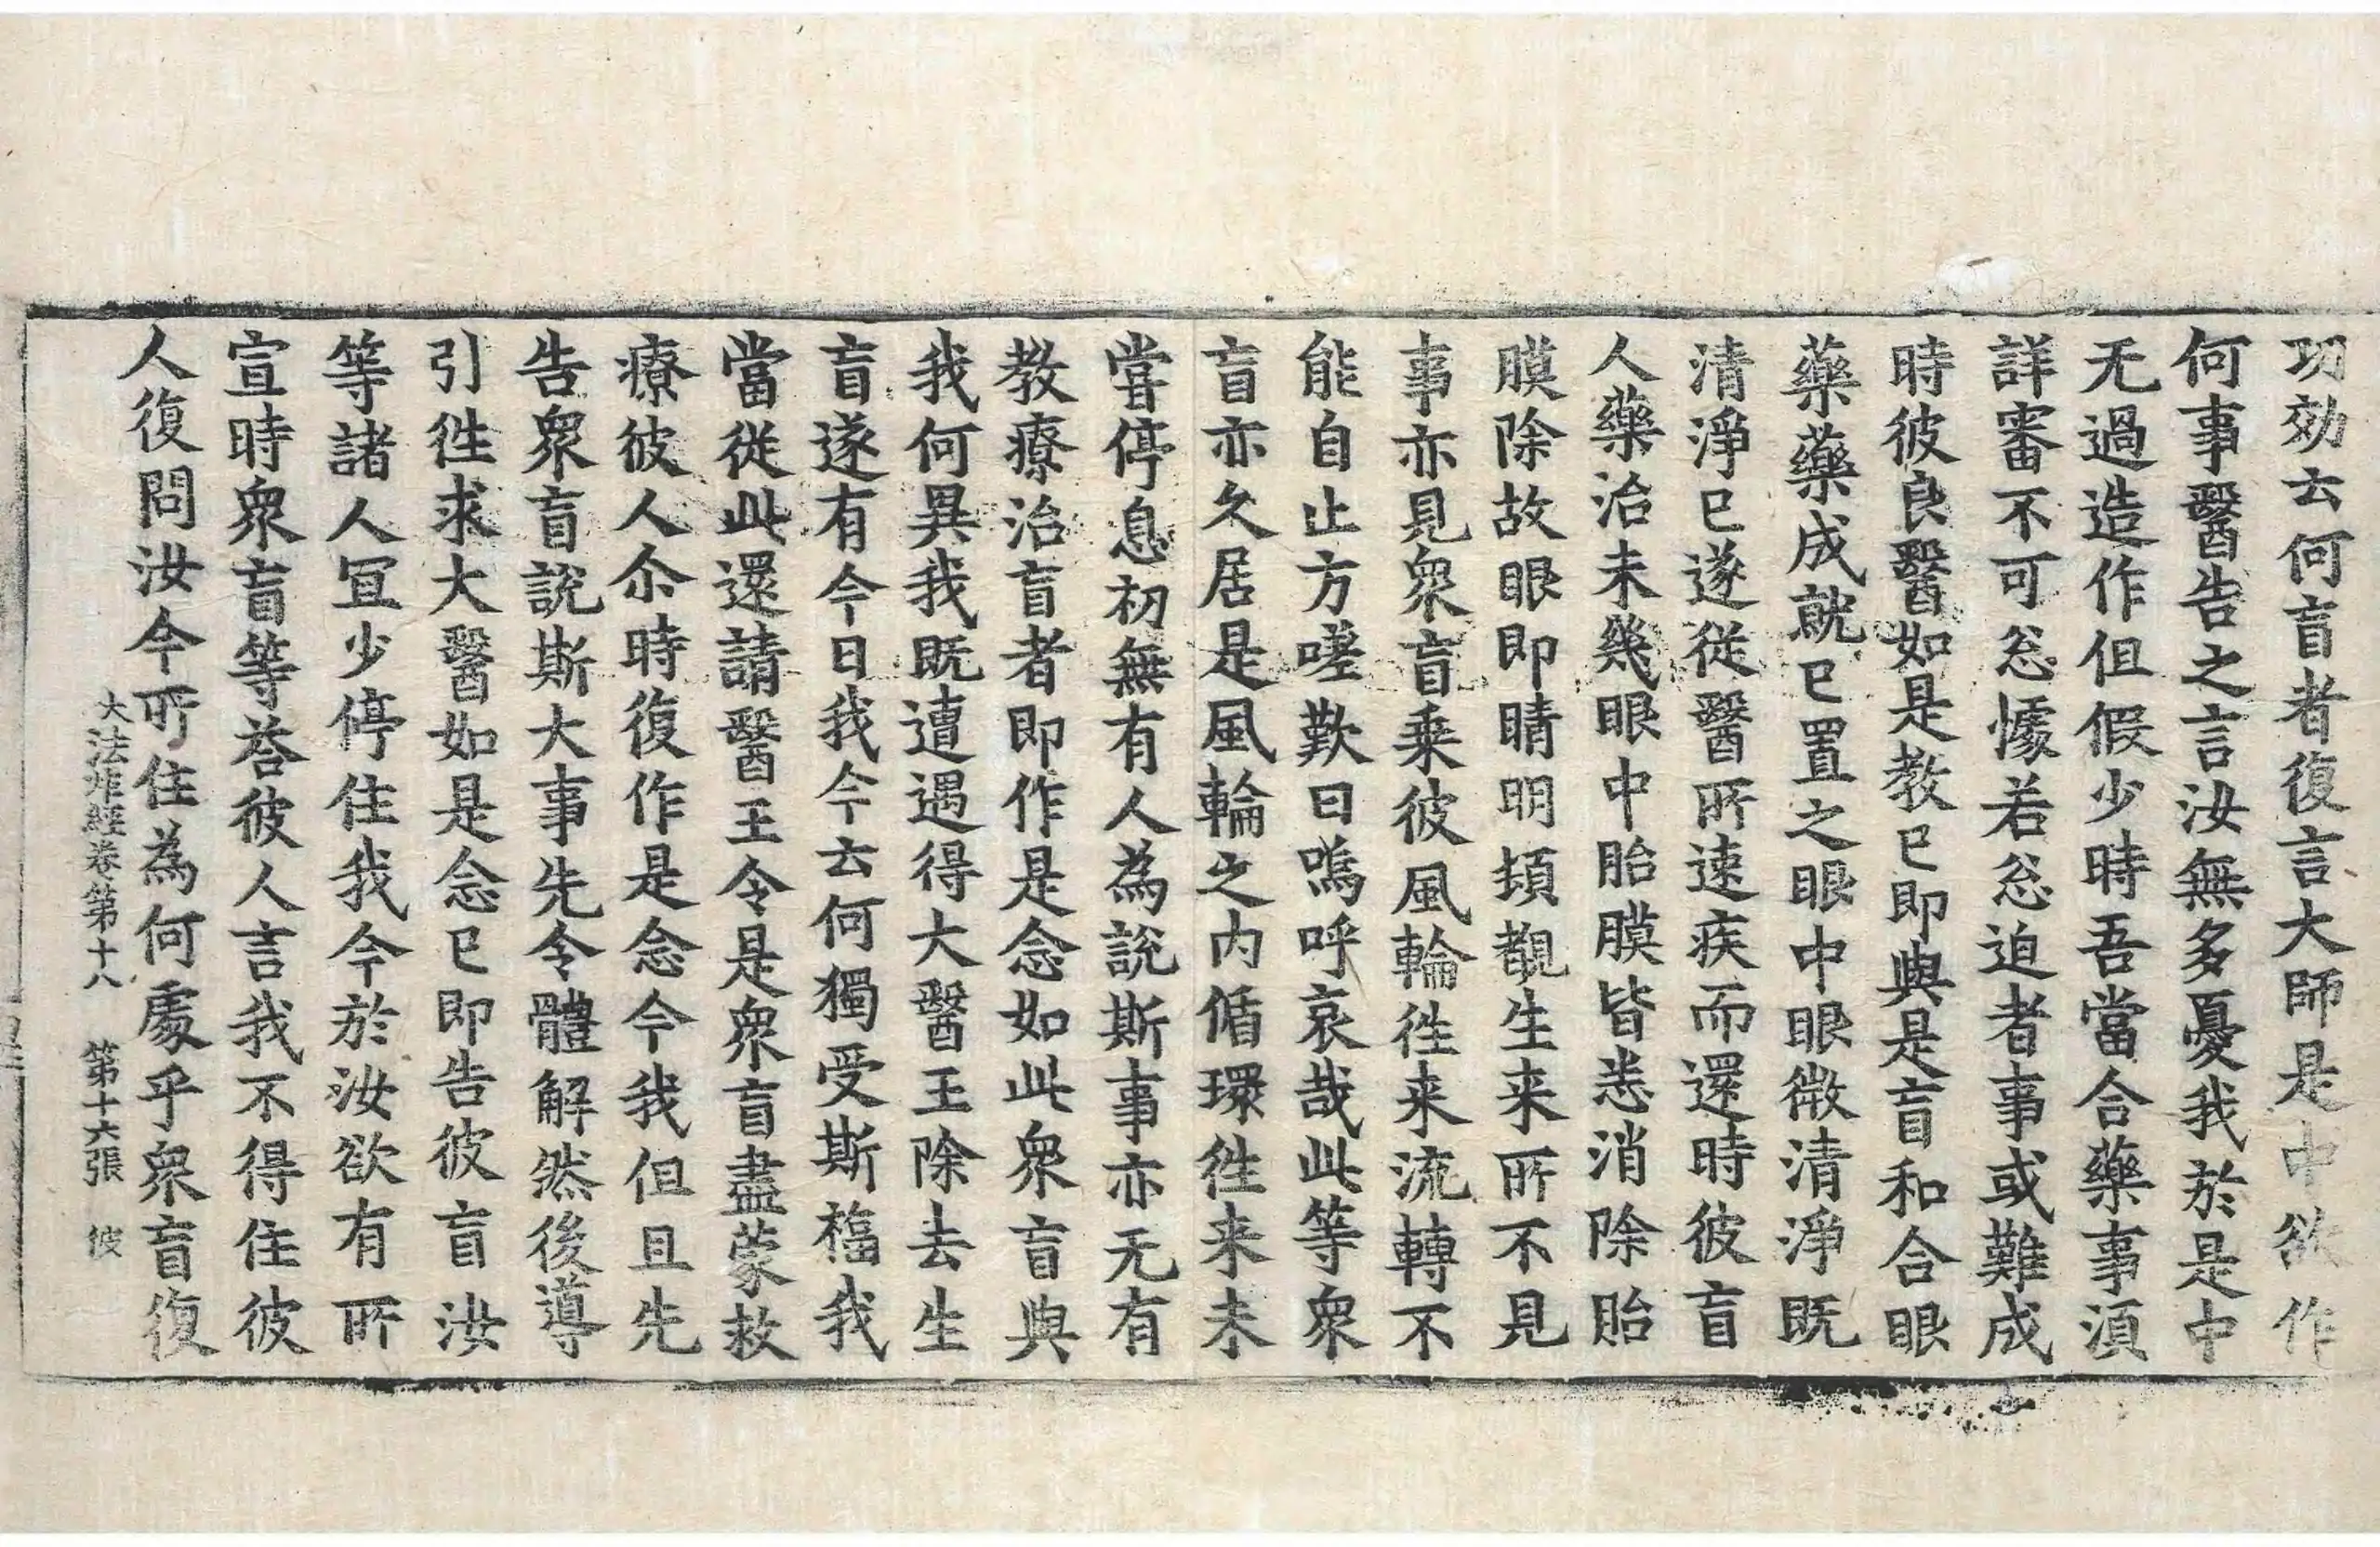 功効云何盲者復言大師是中欲作
何事醫告之言汝無多憂我於是中
无過造作但假少時吾當合藥事湏
詳審不可忩懅若忩迫者事或難成
時彼良醫如是教已即與是盲和合眼
藥藥成就已置之眼中眼微清淨既
清淨已遂從醫所速疾而還時彼盲
人藥治未幾眼中胎膜皆悉消除胎
膜除故眼即睛明頓覩生来所不見
事亦見衆盲乗彼風輪徃来流轉不
能自止方嗟歎曰嗚呼哀哉此等衆
盲亦久居是風輪之内循環徃来未
甞停息初無有人為說斯事亦无有
教療治盲者即作是念如此衆盲與
我何異我既遭遇得大醫王除去生
盲遂有今日我今云何獨受斯福我
當從此還請醫王令是衆盲盡蒙救
療彼人尒時復作是念今我但且先
告衆盲說斯大事先令體解然後導
引徃求大醫如是念已即告彼盲汝
等諸人冝少停住我今於汝欲有所
宣時衆盲等荅彼人言我不得住彼
人復問汝今所住為何處乎衆盲復
大法炬經卷第十八 第十六張 彼